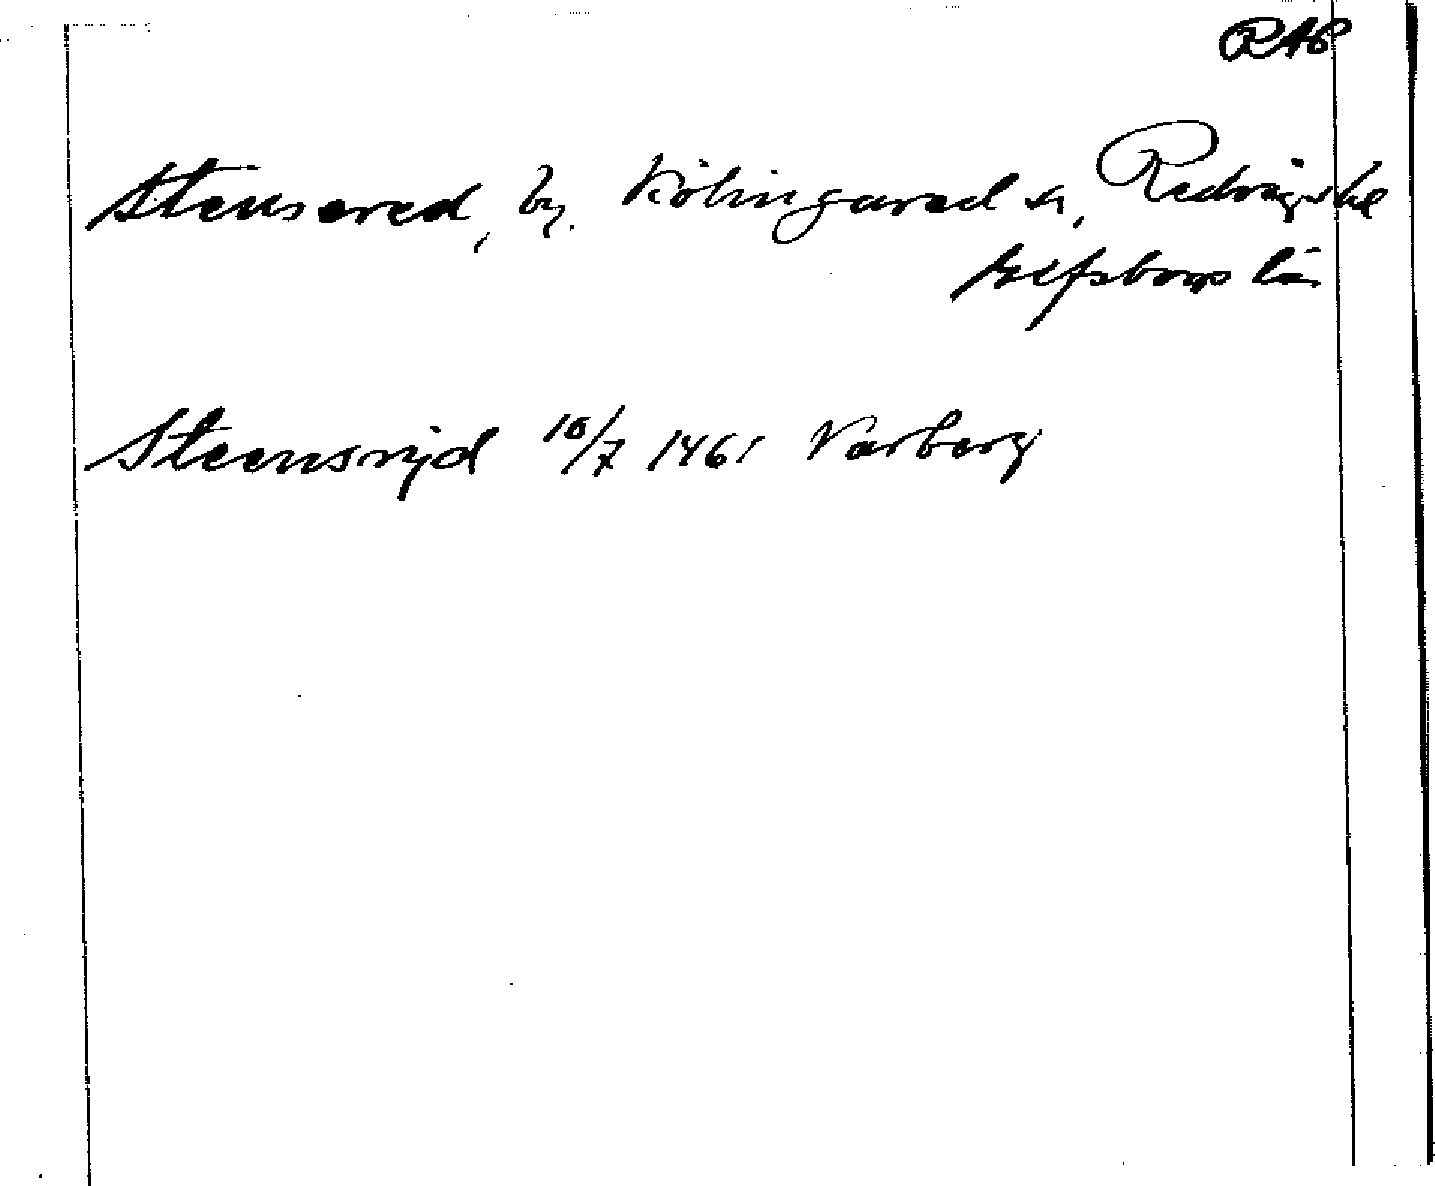 RAP
Stensered, by. Kölingared sn, Redvägs hd
Elfsborgs län
Steensryd 10/7 1461 Varberg